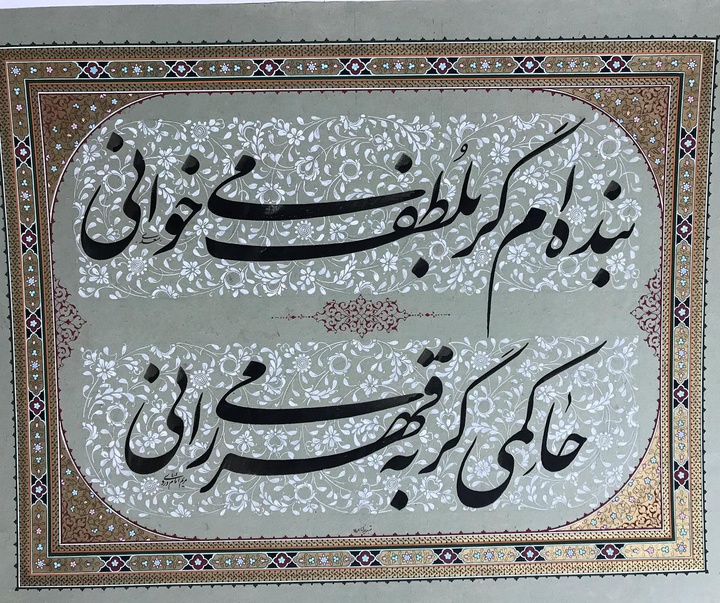 بنده‌ام گر بلُطف می‌خوانی
حاکِمی گر به قهر می‌رانی